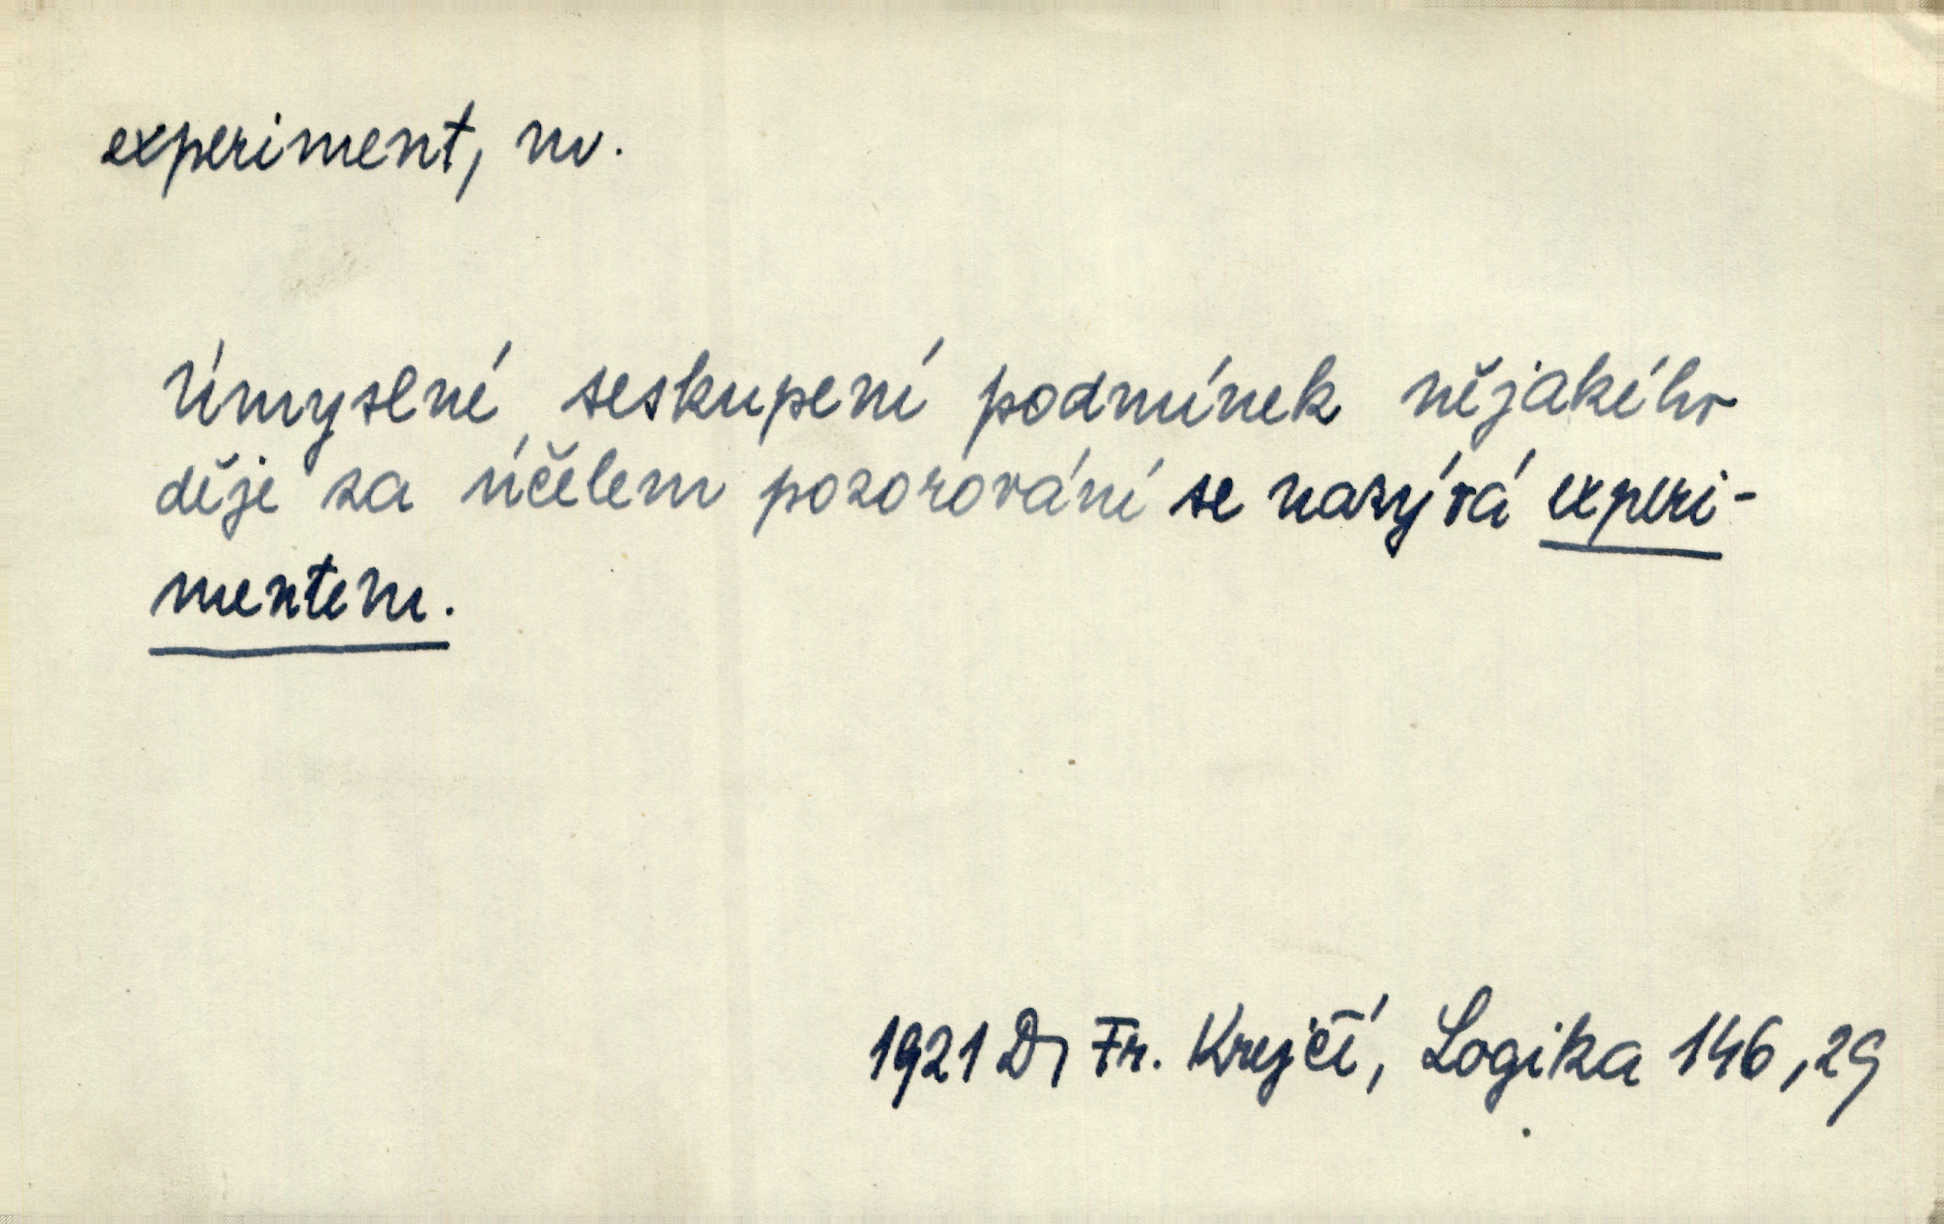 experiment, m.
Úmyslné seskupení podmínek nějakého
děje za účelem pozorování se nazývá experi-
mentem.
1921 Dr Fr. Krejčí, Logika 146,29